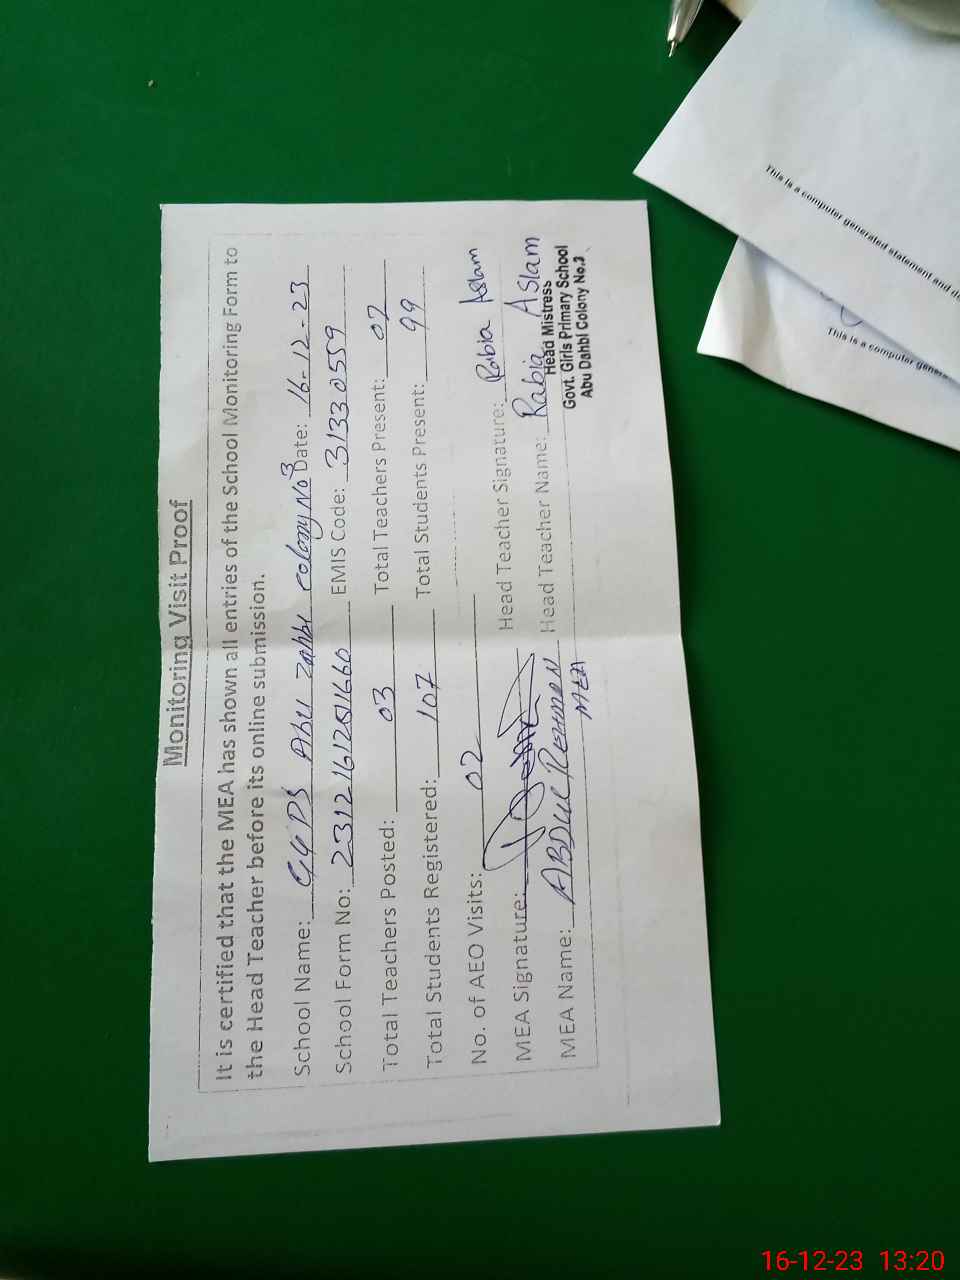 Monitoring Visit Proof
It is certified that the MEA has shown all entries of the School Monitoring Form to
the Head Teacher before its online submission.
School Name: GGPS Abu zahbi colony No 3 Date: 16-12-23
School Form No: EMIS Code: 31330559
Total Teachers Posted: 03 Total Teachers Present: 02
Total Students Registered: 107 Total Students Present: 99
No. of AEO Visits: 02
MEA Signature: Head Teacher Signature: Rabia Aslam
MEA Name: ABDUL REHMAN Head Teacher Name: Rabia Aslam
MEA
Head Mistress
Govt. Girls Primary School
Abu Dahbi Colony No.3
This is a computer generated statement and
This is a computer
16-12-23 13:20